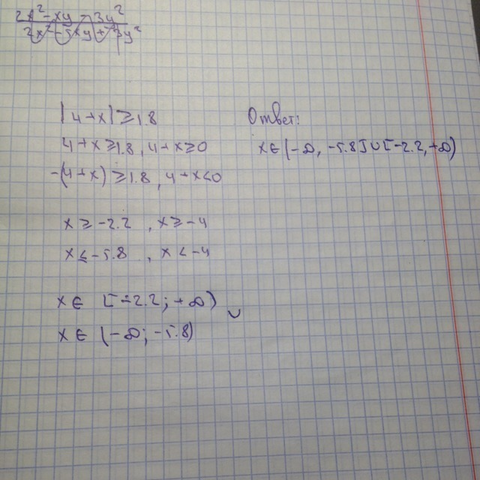 2x²-xy-3y²
2x²-5xy+3y²
|4+x|≥1.8
4+x≥1.8, 4+x≥0
-(4+x)≥1.8, 4+x<0
x≥-2.2, x≥-4
x≤-5.8, x<-4
x∈ [-2.2; +∞)
∪
x∈ (-∞; -5.8)
Ответ:
x∈(-∞, -5.8]∪[-2.2, +∞)